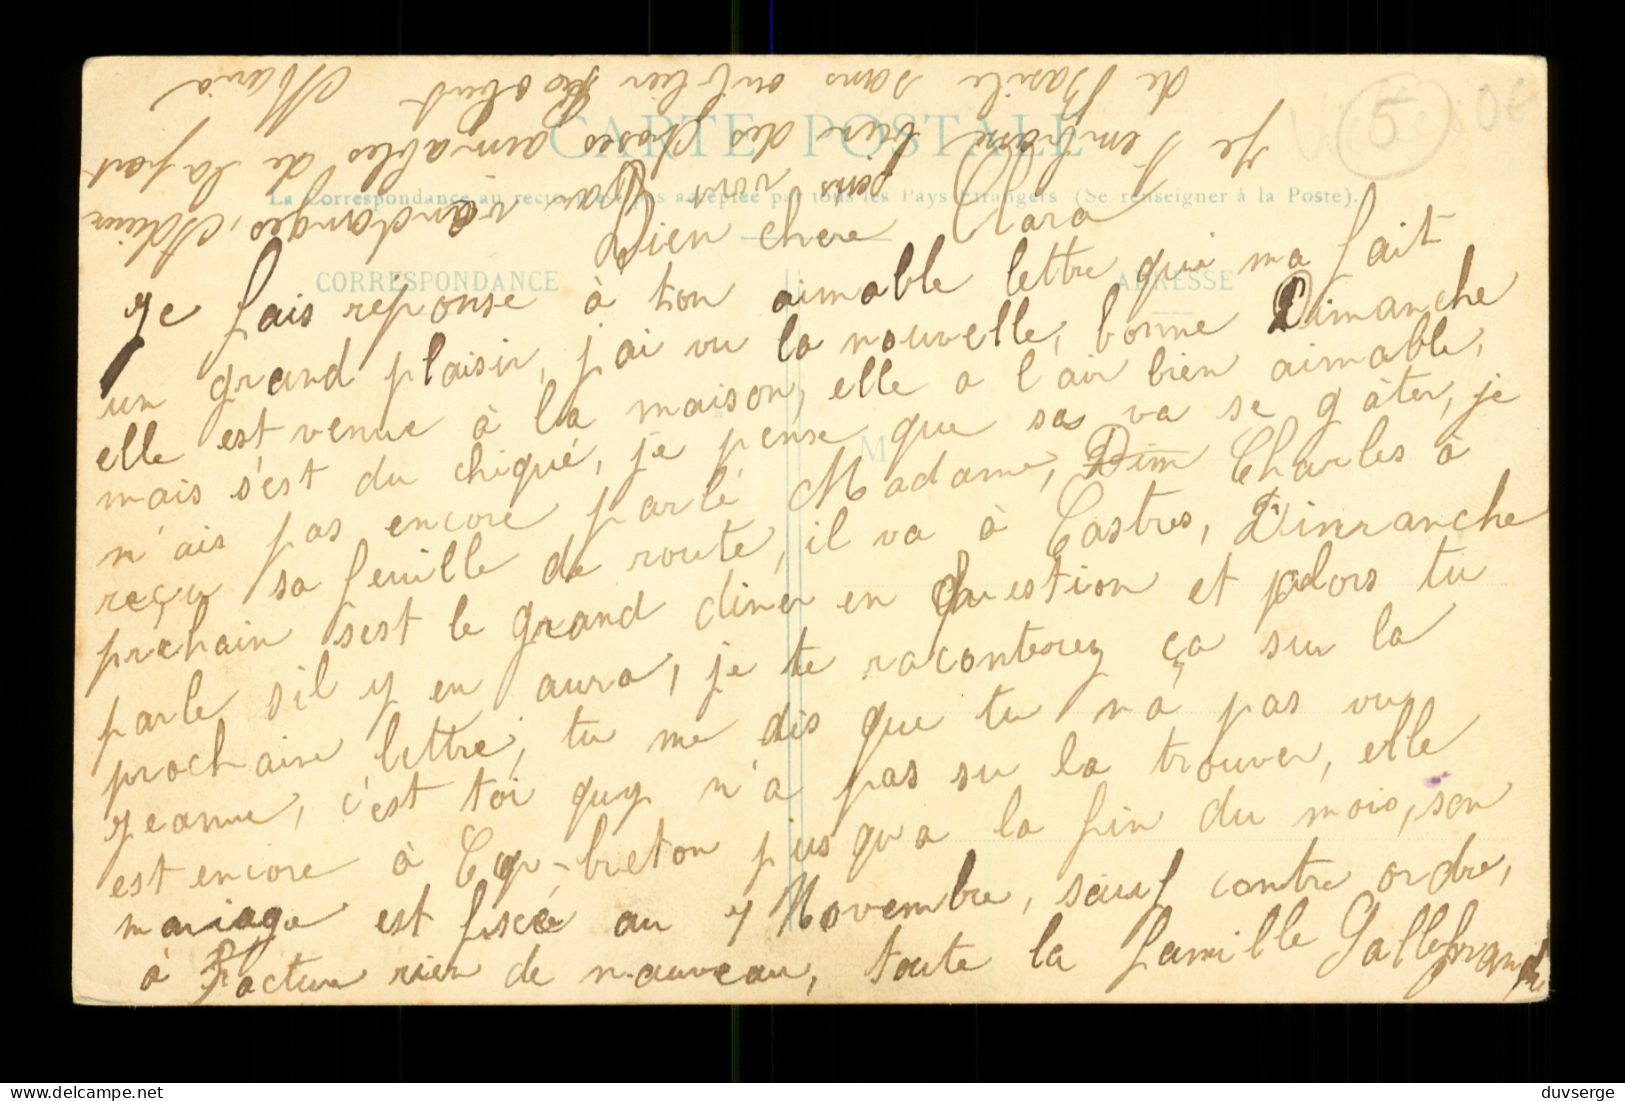 CARTE POSTALE
La Correspondance au recto n'est pas acceptée par tous les Pays Etrangers (Se renseigner à la Poste).
CORRESPONDANCE
ADRESSE
M
5
Bien chere Clara
Je fais reponse à ton aimable lettre qui ma fait
un grand plaisir, j'ai vu la nouvelle, bonne Dimanche
elle est venue à la maison, elle a l'air bien aimable,
mais s'est du chiqué, je pense que sa va se gâter, je
n'ais pas encore parlé Madame, Dim Charles à
reçu sa feuille de route, il va à Castres, Dimanche
prchain s'est le grand diner en Question et alors tu
parle s'il y en aura, je te raconterez ça sur la
prochaine lettre, tu me dis que tu n'a pas vu
Jeanne, c'est toi quy n'a pas su la trouver, elle
est encore à Cap-breton jusqu'a la fin du mois, son
mariage est fiscé au 7 Novembre, sauf contre ordre,
à Factum rien de nauveau, toute la famille Gallebrand
pars vont aux vandanges, Adieux
Je t'embrasse bien des choses aimables de la part
de Basile sans oublier Robert Maria